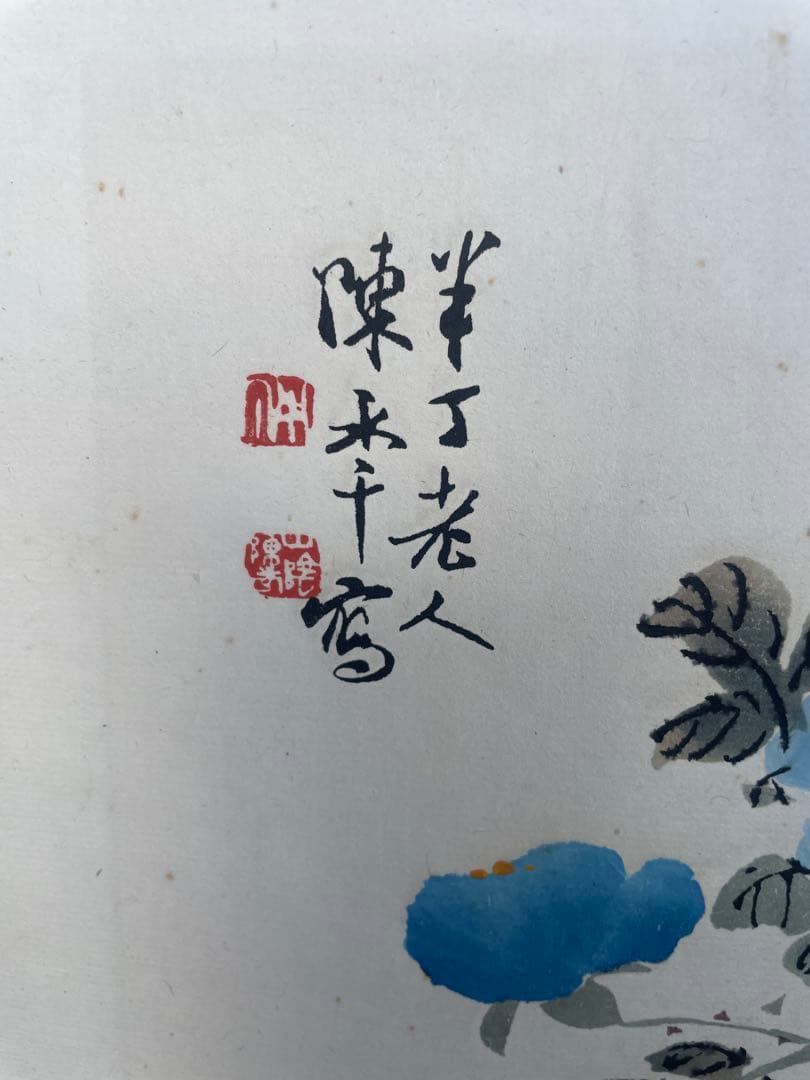 半丁老人
陳秊寫
山陰陳秊